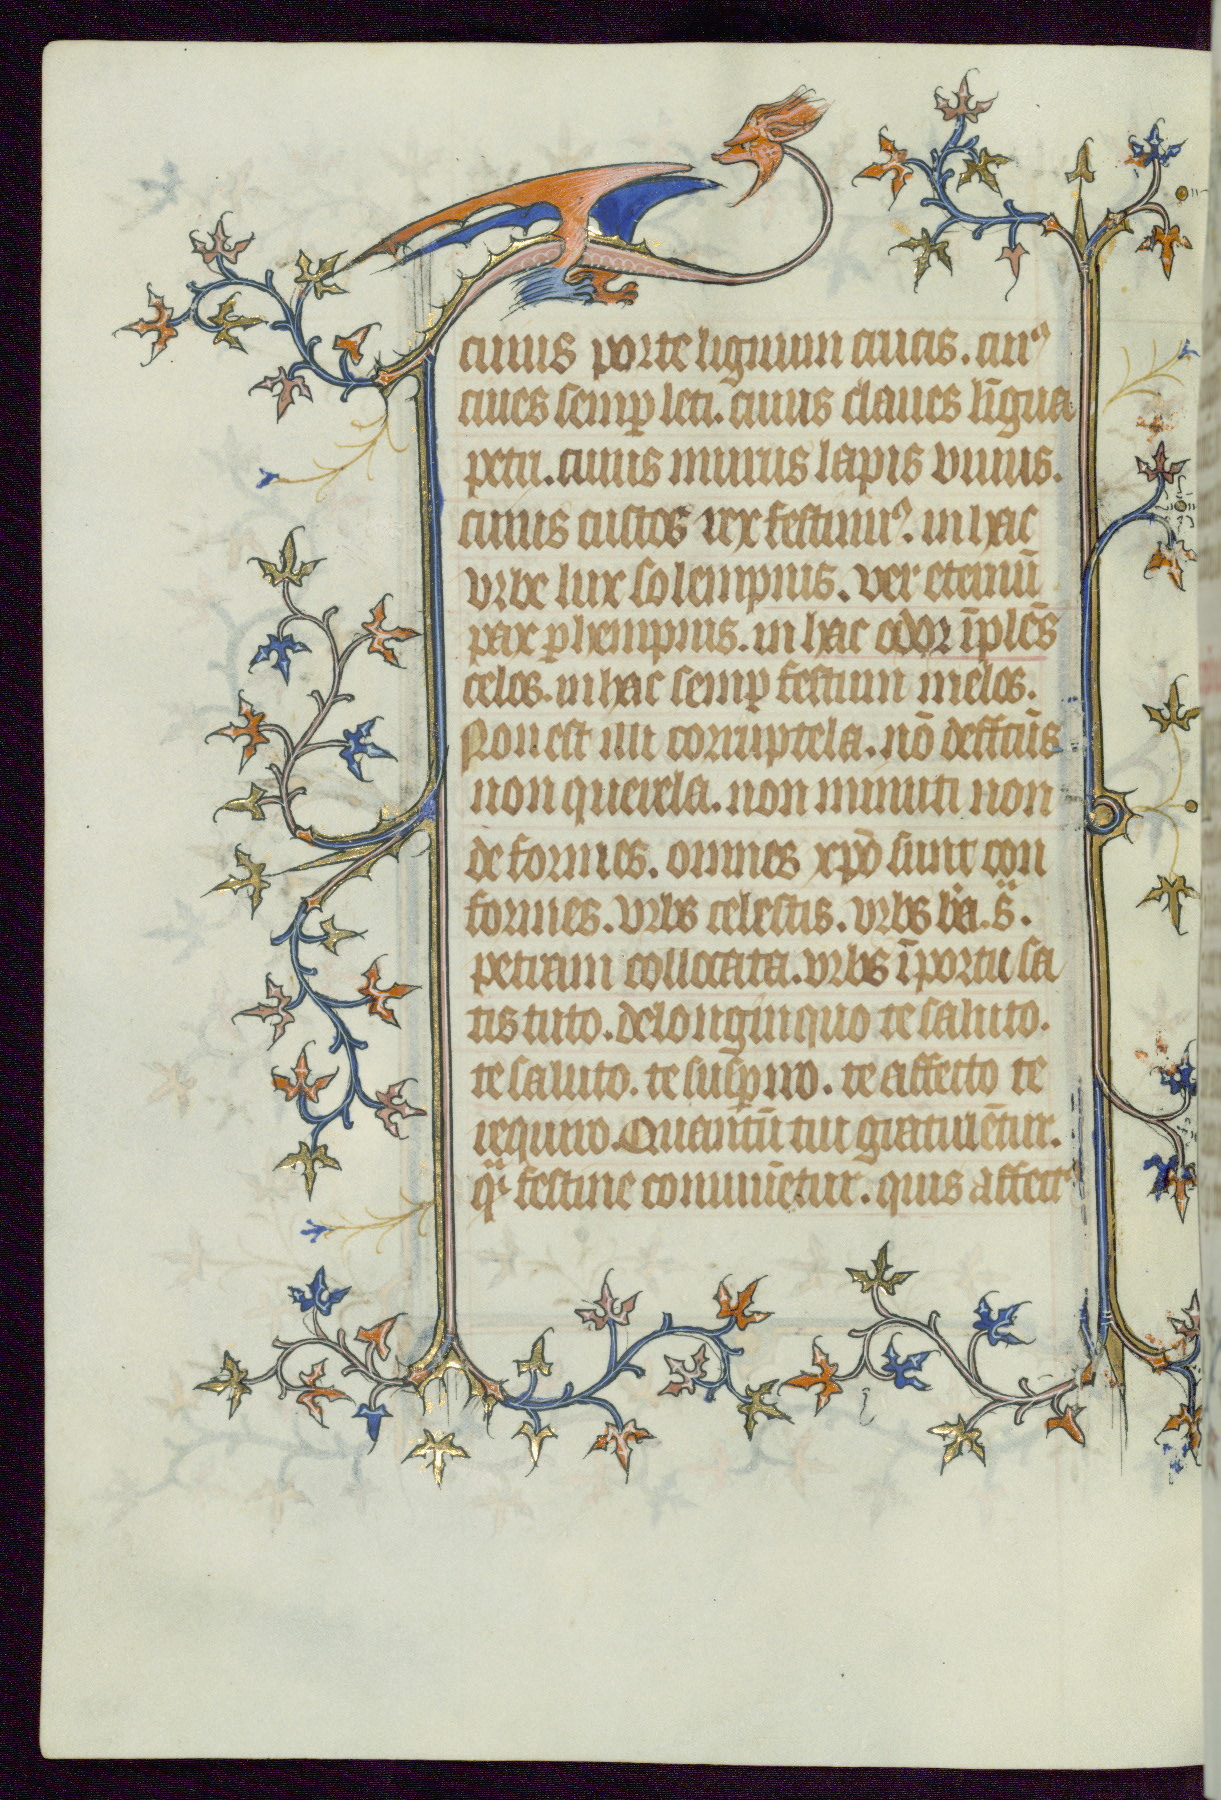 cuius porte lignum crucis. cui⁹
ciues semp̲ leti. cuius claues lĩgua
petri. cuius murus lapis viuus.
cuius custos rex festiuu⁹. in hac
vrbe lux solempnis. ver eternũ
pax p̲hempnis. in hac odor ĩplẽs
celos. in hac semp̲ festum melos.
Non est illi corruptela. nõ deffctũs
non querela. non minuti non
deformes. omnes xp̃o sunt con
formes. vrbs celestis. vrbs b̃a. s̃.
petram collocata. vrbs ĩ portu sa
tis tuto. de longinquo te saluto.
te saluto. te susp̲iro. te affecto te
requiro. Quantũ tui gratulẽtur.
q̃ festiue conuiuẽtur. quis affect⁹